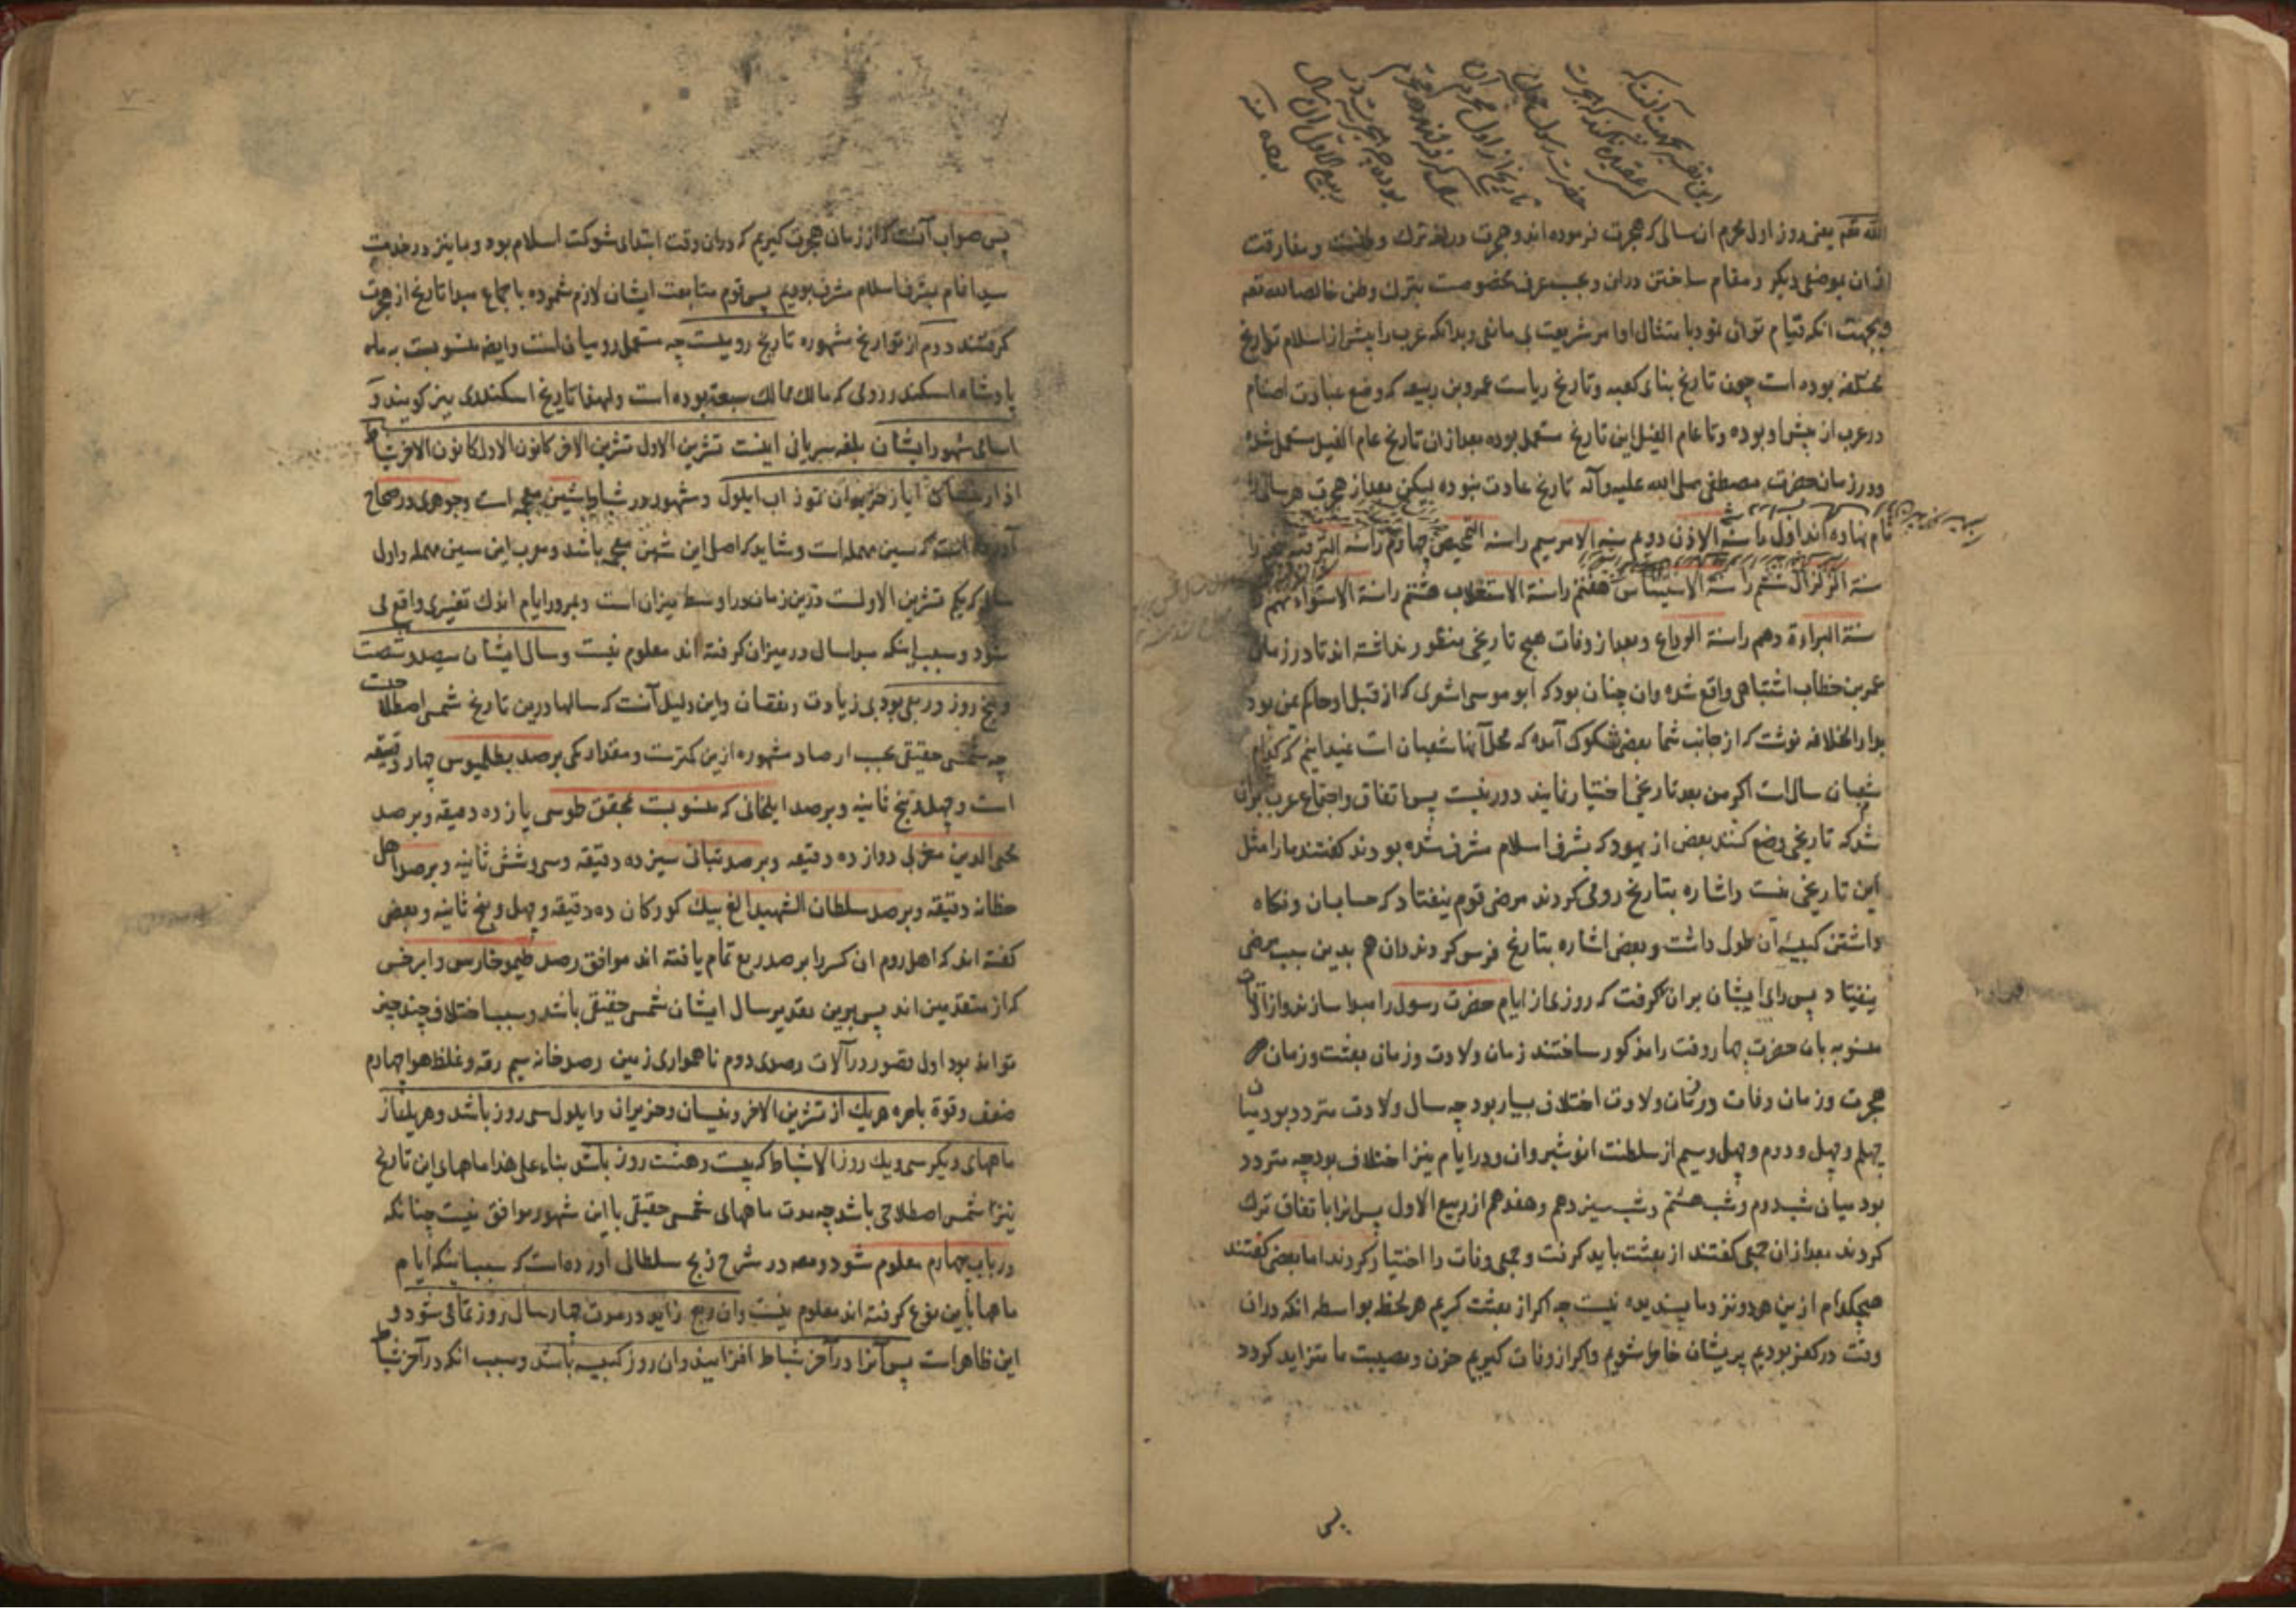 الله تعم یعنی روز اول محرم ان سالی که هجرت فرموده اند و هجرت در لغة ترك وطنست و مفارقت
ازان بموضعی دیکر و مقام ساختن دران و بحسب عرف مخصوصست بترك وطن خالصا لله تعم
و بجهت انکه قیام توان نمود بامتثال اوامر شریعت بی مانعی و بدانکه عرب را پیش از اسلام تواریخ
مختلفه بوده است چون تاریخ بنای کعبه و تاریخ ریاست عمرو بن ربیعه که وضع عبادت اصنام
در عرب از پیش او بوده و تا عام الفیل این تاریخ مستعمل بوده بعد ازان تاریخ عام الفیل مستعمل شده
و در زمان حضرت مصطفی صلی الله علیه و آله تاریخ عادت نبوده لیکن بعد از هجرت هر سالی را
نام نهاده اند اول را سنة الاذن دوم سنة الامر سیم را سنة التمحیص چهارم را سنة الترفیه
سنة الزلزال ششم را سنة الاستیناس هفتم را سنة الاستغلاب هشتم را سنة الاستواء نهم را
سنة البراءة دهم را سنة الوداع و بعد از وفات هیچ تاریخی منظور نداشته اند تا در زمان
عمر بن خطاب اشتباهی واقع شده وان چنان بود که ابو موسی اشعری که از قبل او حاکم یمن بود
بدار الخلافه نوشت که از جانب شما بعضی شکوك آمده که محل آنها شعبان است نمیدانیم که کدام
شعبان سال است اکر من بعد تاریخی اختیار نمایند دور نیست پس اتفاق و اجتماع عرب بران
شد که تاریخی وضع کنند بعض از یهود که بشرف اسلام مشرف شده بودند کفتند ما را مثل
این تاریخی هست و اشاره بتاریخ رومی کردند مرضی قوم نیفتاد که حسابان و نکاه
داشتن کبیسه آن طول داشت و بعضی اشاره بتاریخ فرس کردند ان هم بدین سبب مرضی
نیفتاد پس رای ایشان بران کرفت که روزی از ایام حضرت رسول را مبدا سازند و از اوقات
منسوبه بان حضرت چهار وقت را مذکور ساختند زمان ولادت و زمان بعثت و زمان
هجرت و زمان وفات و در زمان ولادت اختلاف بسیار بود چه سال ولادت متردد بود میان
چهلم و چهل و دوم و چهل و سیم از سلطنت انوشیروان و در ایام نیز اختلاف بود چه متردد
بود میان شب دوم و شب هشتم و شب سیزدهم و هفدهم از ربیع الاول پس انرا باتفاق ترك
کردند بعد ازان جمعی کفتند از بعثت باید کرفت و جمعی وفات را اختیار کردند اما بعضی کفتند
هیچکدام ازین هر دو نزد ما پسندیده نیست چه اکر از بعثت کیریم هر لحظه بواسطه انکه دران
وقت در کفر بودیم پریشان خاطر شویم و اکر از وفات کیریم حزن و مصیبت ما متزاید کردد
پس
پس صواب آنست که از زمان هجرت کیریم که دران وقت ابتدای شوکت اسلام بود و ما نیز در خدمت
سید انام بشرف اسلام مشرف بودیم پس قوم متابعت ایشان لازم شمرده باجماع مبدا تاریخ از هجرت
کرفتند دوم از تواریخ مشهوره تاریخ رومیست چه مستعمل رومیان است و ایضا منسوبست به
پادشاه اسکندر رومی که مالك ممالك سبعه بوده است و لهذا تاریخ اسکندری نیز کویند و
اسامی شهور ایشان بلغه سریانی اینست تشرین الاول تشرین الاخر کانون الاول کانون الاخر شباط
اذار نیسان ایار حزیران تموز اب ایلول و مشهور در شباط شین معجمه است و جوهری در صحاح
آورده است که سین مهمله است و شاید که اصل این شین معجمه باشد و معرب این سین مهمله و اول
سال که یکم تشرین الاولست درین زمان در اواسط میزان است و بمرور ایام اندك تغییری واقع می
شود و سبب اینکه مبدا سال در میزان کرفته اند معلوم نیست و سال ایشان سیصد و شصت
و پنج روز و ربعی بود بی زیادت و نقصان و این دلیل آنست که سالها درین تاریخ شمسی اصطلاحیست
چه شمسی حقیقی بحسب ارصاد مشهوره ازین کمترست و مقدار کمی برصد بطلمیوس چهار دقیقه
است و چهل و پنج ثانیه و برصد ایلخانی که منسوبست بمحقق طوسی یازده دقیقه و برصد
محی الدین مغربی دوازده دقیقه و برصد بتانی سیزده دقیقه و سی و شش ثانیه و برصد اهل
خطا نه دقیقه و برصد سلطان الشهید الغ بیك کورکان ده دقیقه و چهل و پنج ثانیه و بعضی
کفته اند که اهل روم ان کسر را برصد ربع تمام یافته اند موافق رصد طیموخارس و ابرخس
که از متقدمین اند پس برین تقدیر سال ایشان شمسی حقیقی باشد و سبب اختلاف چند چیز
تواند بود اول قصور در آلات رصدی دوم ناهمواری زمین رصد خانه سیم رقه و غلظ هوا چهارم
ضعف و قوة باصره هریك از تشرین الاخر و نیسان و حزیران و ایلول سی روز باشد و هریك از
ماههای دیکر سی و یك روز الا شباط که بیست و هشت روز باشد بناء علی هذا ماههای این تاریخ
نیز شمسی اصطلاحی باشد چه مدت ماههای شمسی حقیقی با این شهور موافق نیست چنانکه
در باب چهارم معلوم شود و مص در شرح زیج سلطانی آورده است که سبب اینکه ایام
ماهها باین نوع کرفته اند معلوم نیست وان ربع زاید در مدت چهار سال روز تمامی شود و
این ظاهر است پس آنرا در آخر شباط افزایند وان روز کبیسه باشد و سبب انکه در آخر شباط